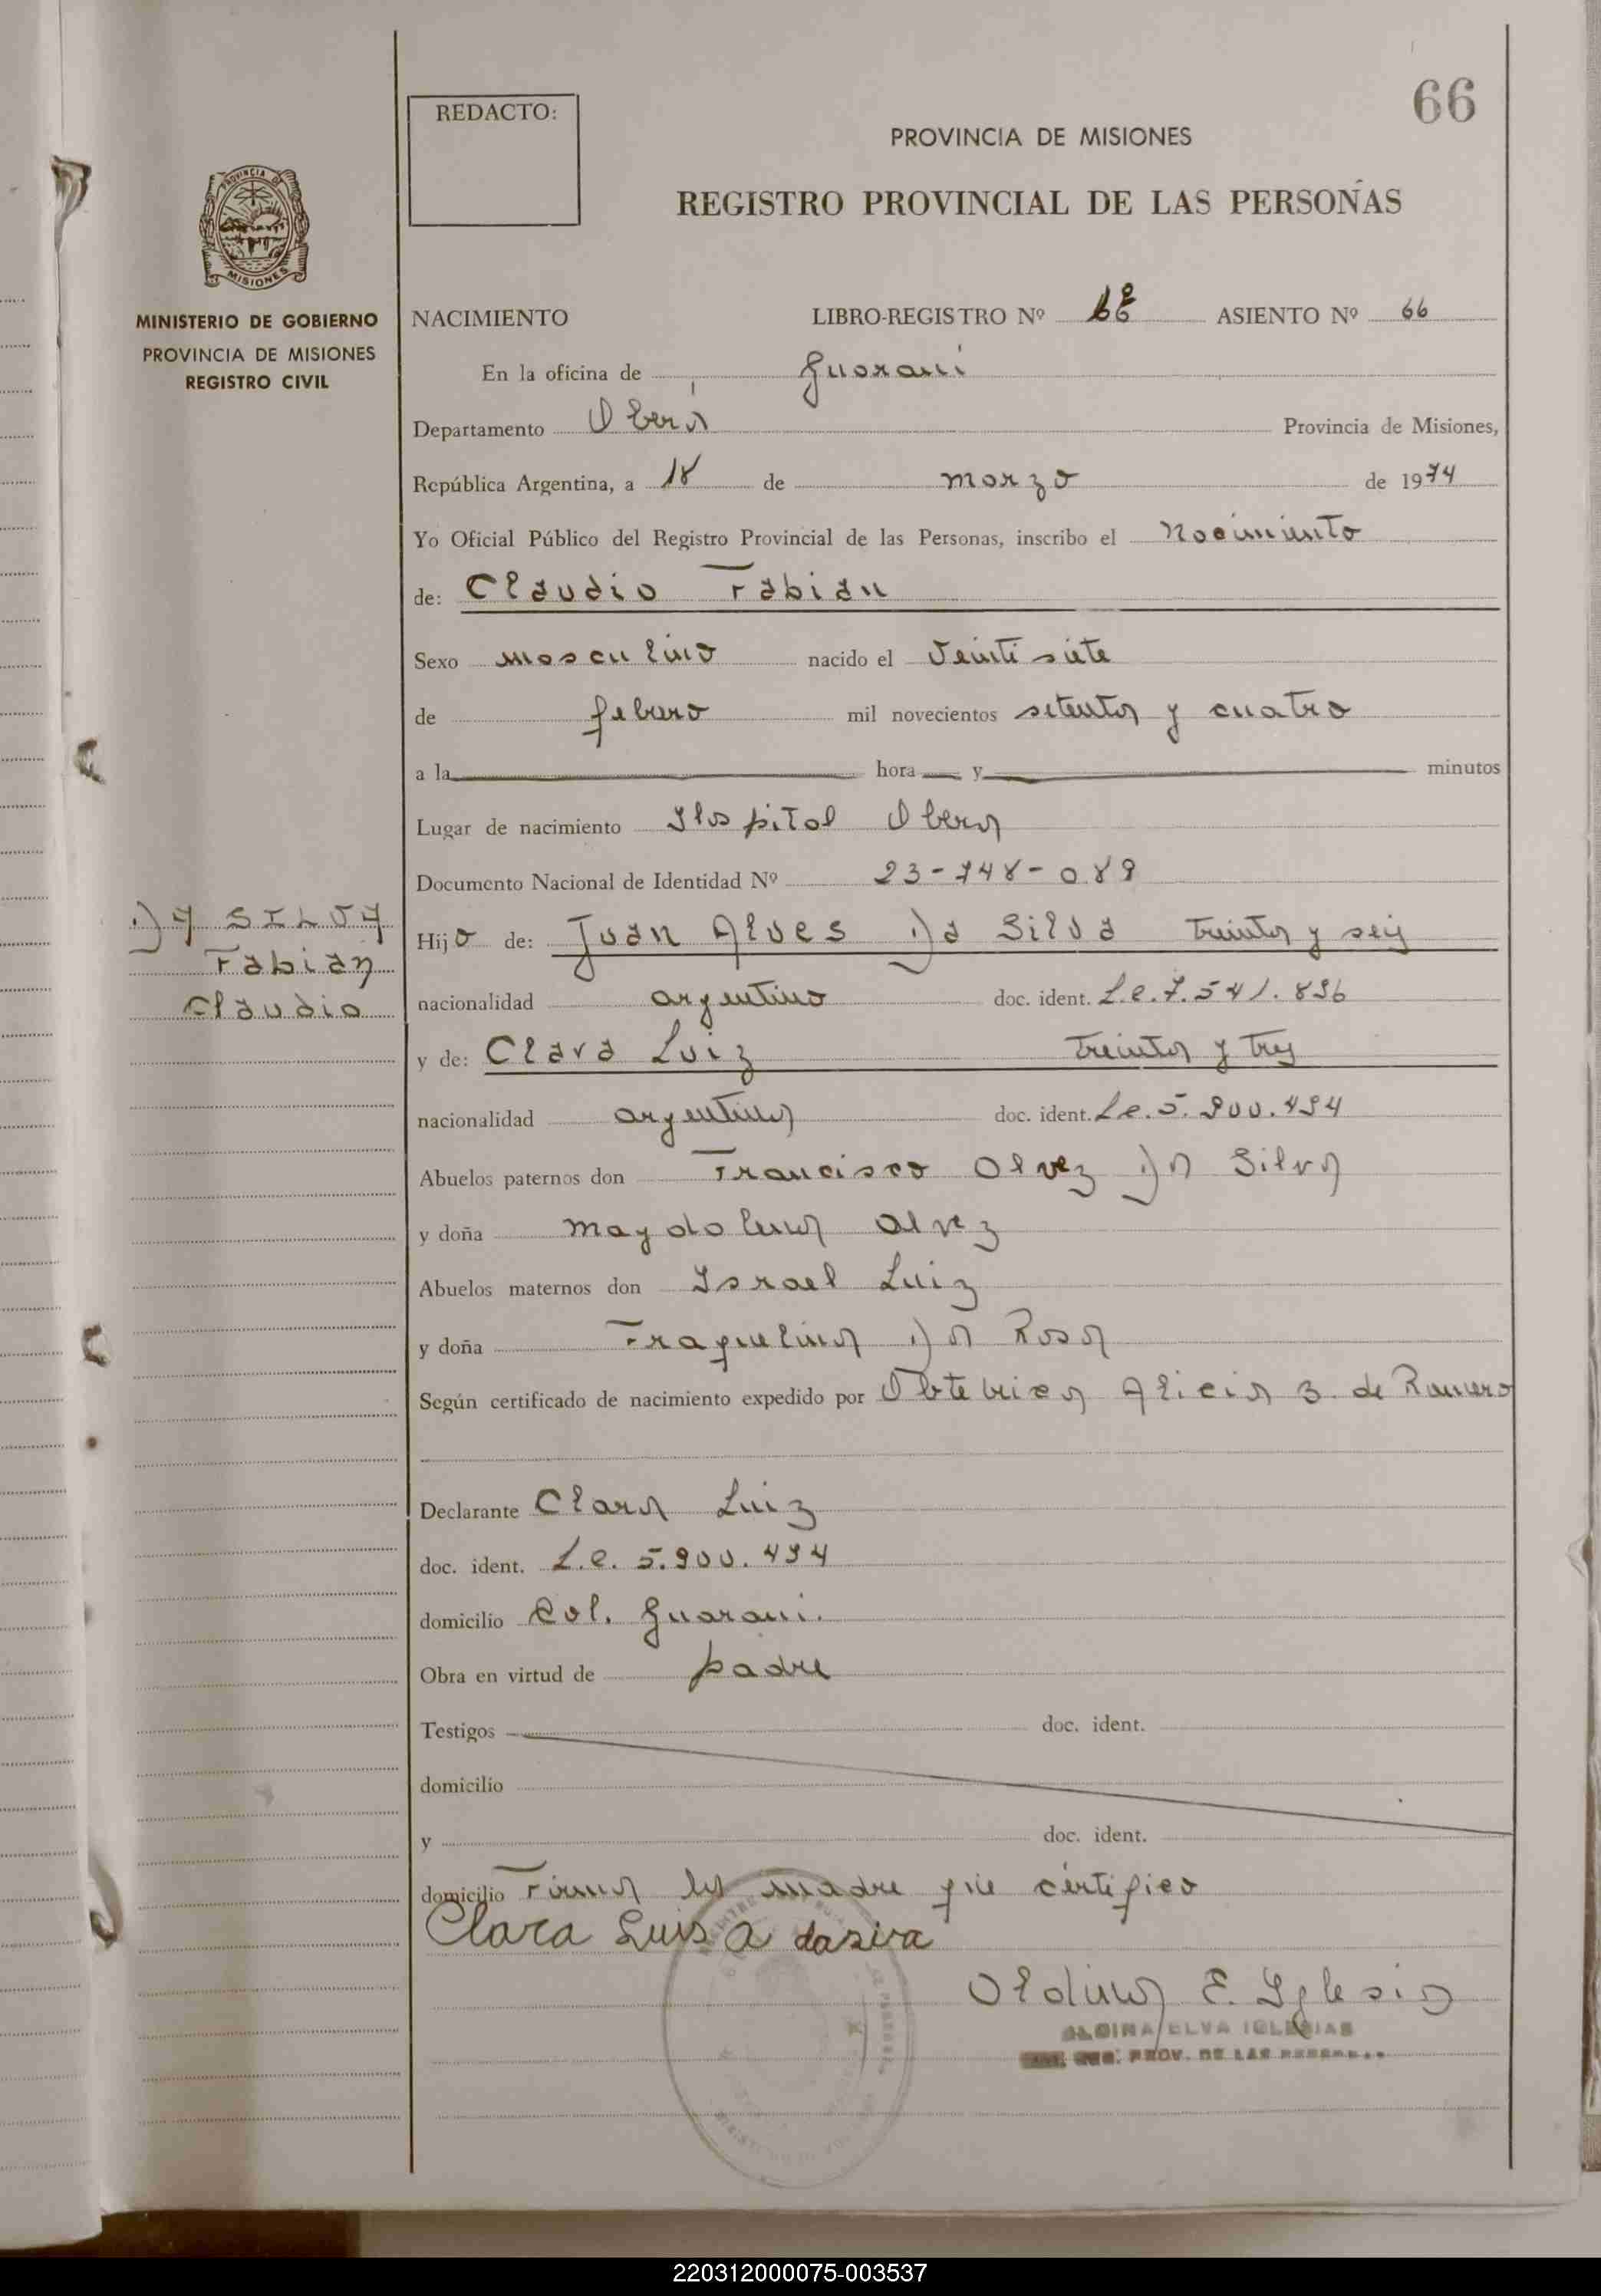 66
REDACTO:
PROVINCIA DE MISIONES
REGISTRO PROVINCIAL DE LAS PERSONAS
PROVINCIA DE
MISIONES
MINISTERIO DE GOBIERNO
PROVINCIA DE MISIONES
REGISTRO CIVIL
NACIMIENTO LIBRO-REGISTRO Nº ASIENTO Nº 66
En la oficina de Guarani
Departamento Oberá Provincia de Misiones,
República Argentina, a 18 de marzo de 1974
Yo Oficial Público del Registro Provincial de las Personas, inscribo el Nacimiento
de: Claudio Fabian
Sexo masculino nacido el Veintisiete
de febrero mil novecientos setenta y cuatro
a la hora y minutos
Lugar de nacimiento Hospital Obera
Documento Nacional de Identidad Nº 23-748-089
Hijo de: Juan Alves Da Silva treinta y seis
nacionalidad argentino doc. ident. L.e.7.541.896
y de: Clara Luiz treinta y tres
nacionalidad argentina doc. ident. L.e.5.900.494
Abuelos paternos don Francisco Alvez Da Silva
y doña Magdalena Alvez
Abuelos maternos don Israel Luiz
y doña Fraquelina Da Rosa
Según certificado de nacimiento expedido por Obtetrica Alicia B. de Romero
DA SILVA
Fabian
Claudio
Declarante Clara Luiz
doc. ident. L.e. 5.900.494
domicilio Col. Guarani.
Obra en virtud de padre
Testigos doc. ident.
domicilio
y doc. ident.
domicilio Firma la madre que certifico
Clara Luis a dasiva
Aldina E. Iglesias
ALDINA ELVA IGLESIAS
PROV. DE LAS
220312000075-003537